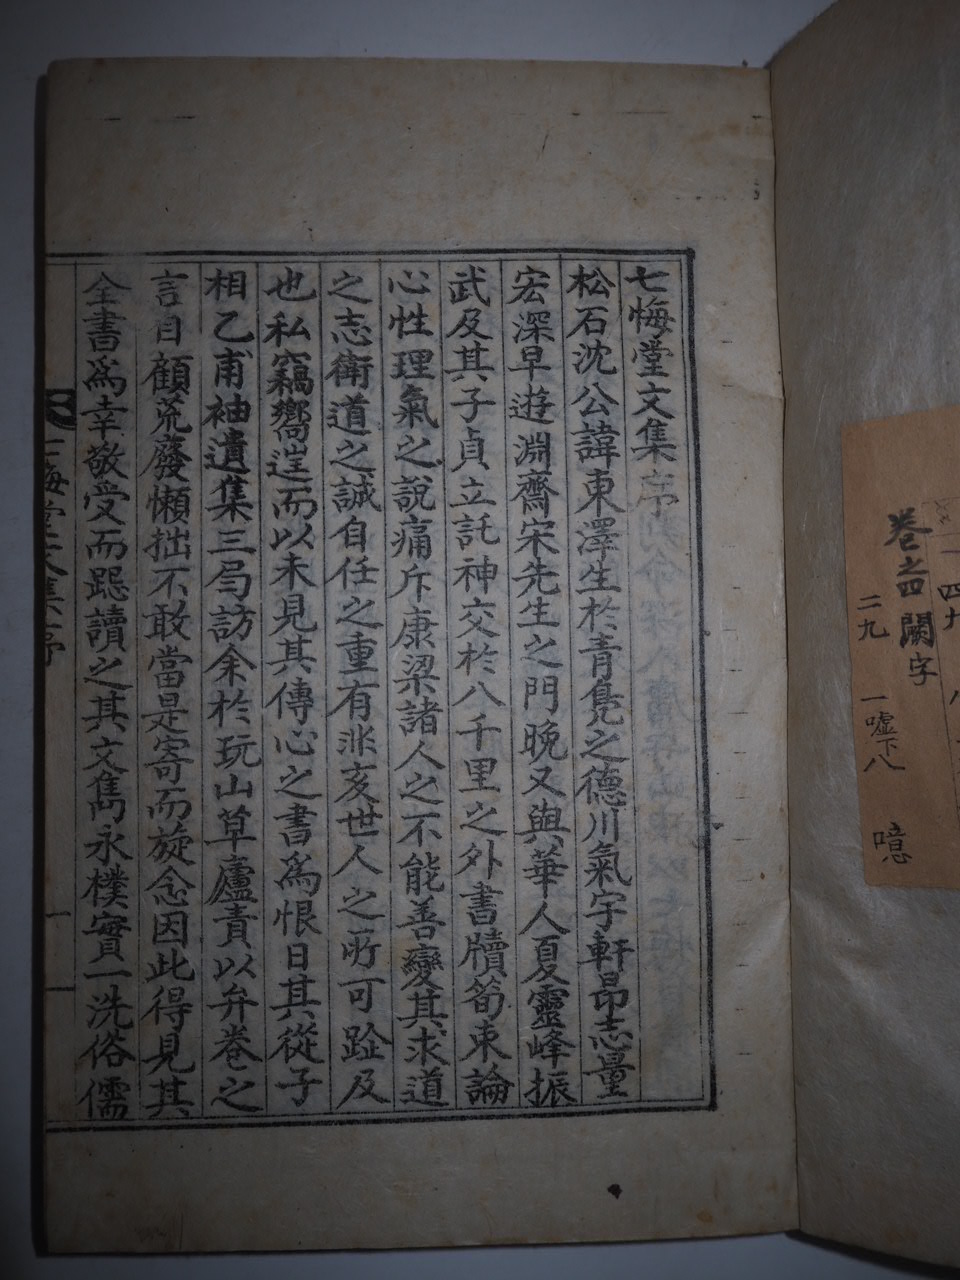 七悔堂文集序
松石沈公諱東澤生於青鳧之德川氣宇軒昂志量
宏深早遊淵齋宋先生之門晚又與華人夏靈峰振
武及其子貞立託神交於八千里之外書牘筍束論
心性理氣之說痛斥康梁諸人之不能善變其求道
之志衛道之誠自任之重有非亥世人之所可趾及
也私竊嚮逞而以未見其傳心之書爲恨日其從子
相乙甫袖遺集三局訪余於玩山草廬責以弁卷之
言自顧荒廢懶拙不敢當是寄而旋念因此得見其
全書爲幸敬受而跽讀之其文雋永樸實一洗俗儒
七悔堂文集序
一
卷之四 闕字
四九
二九 一噓下八 噫